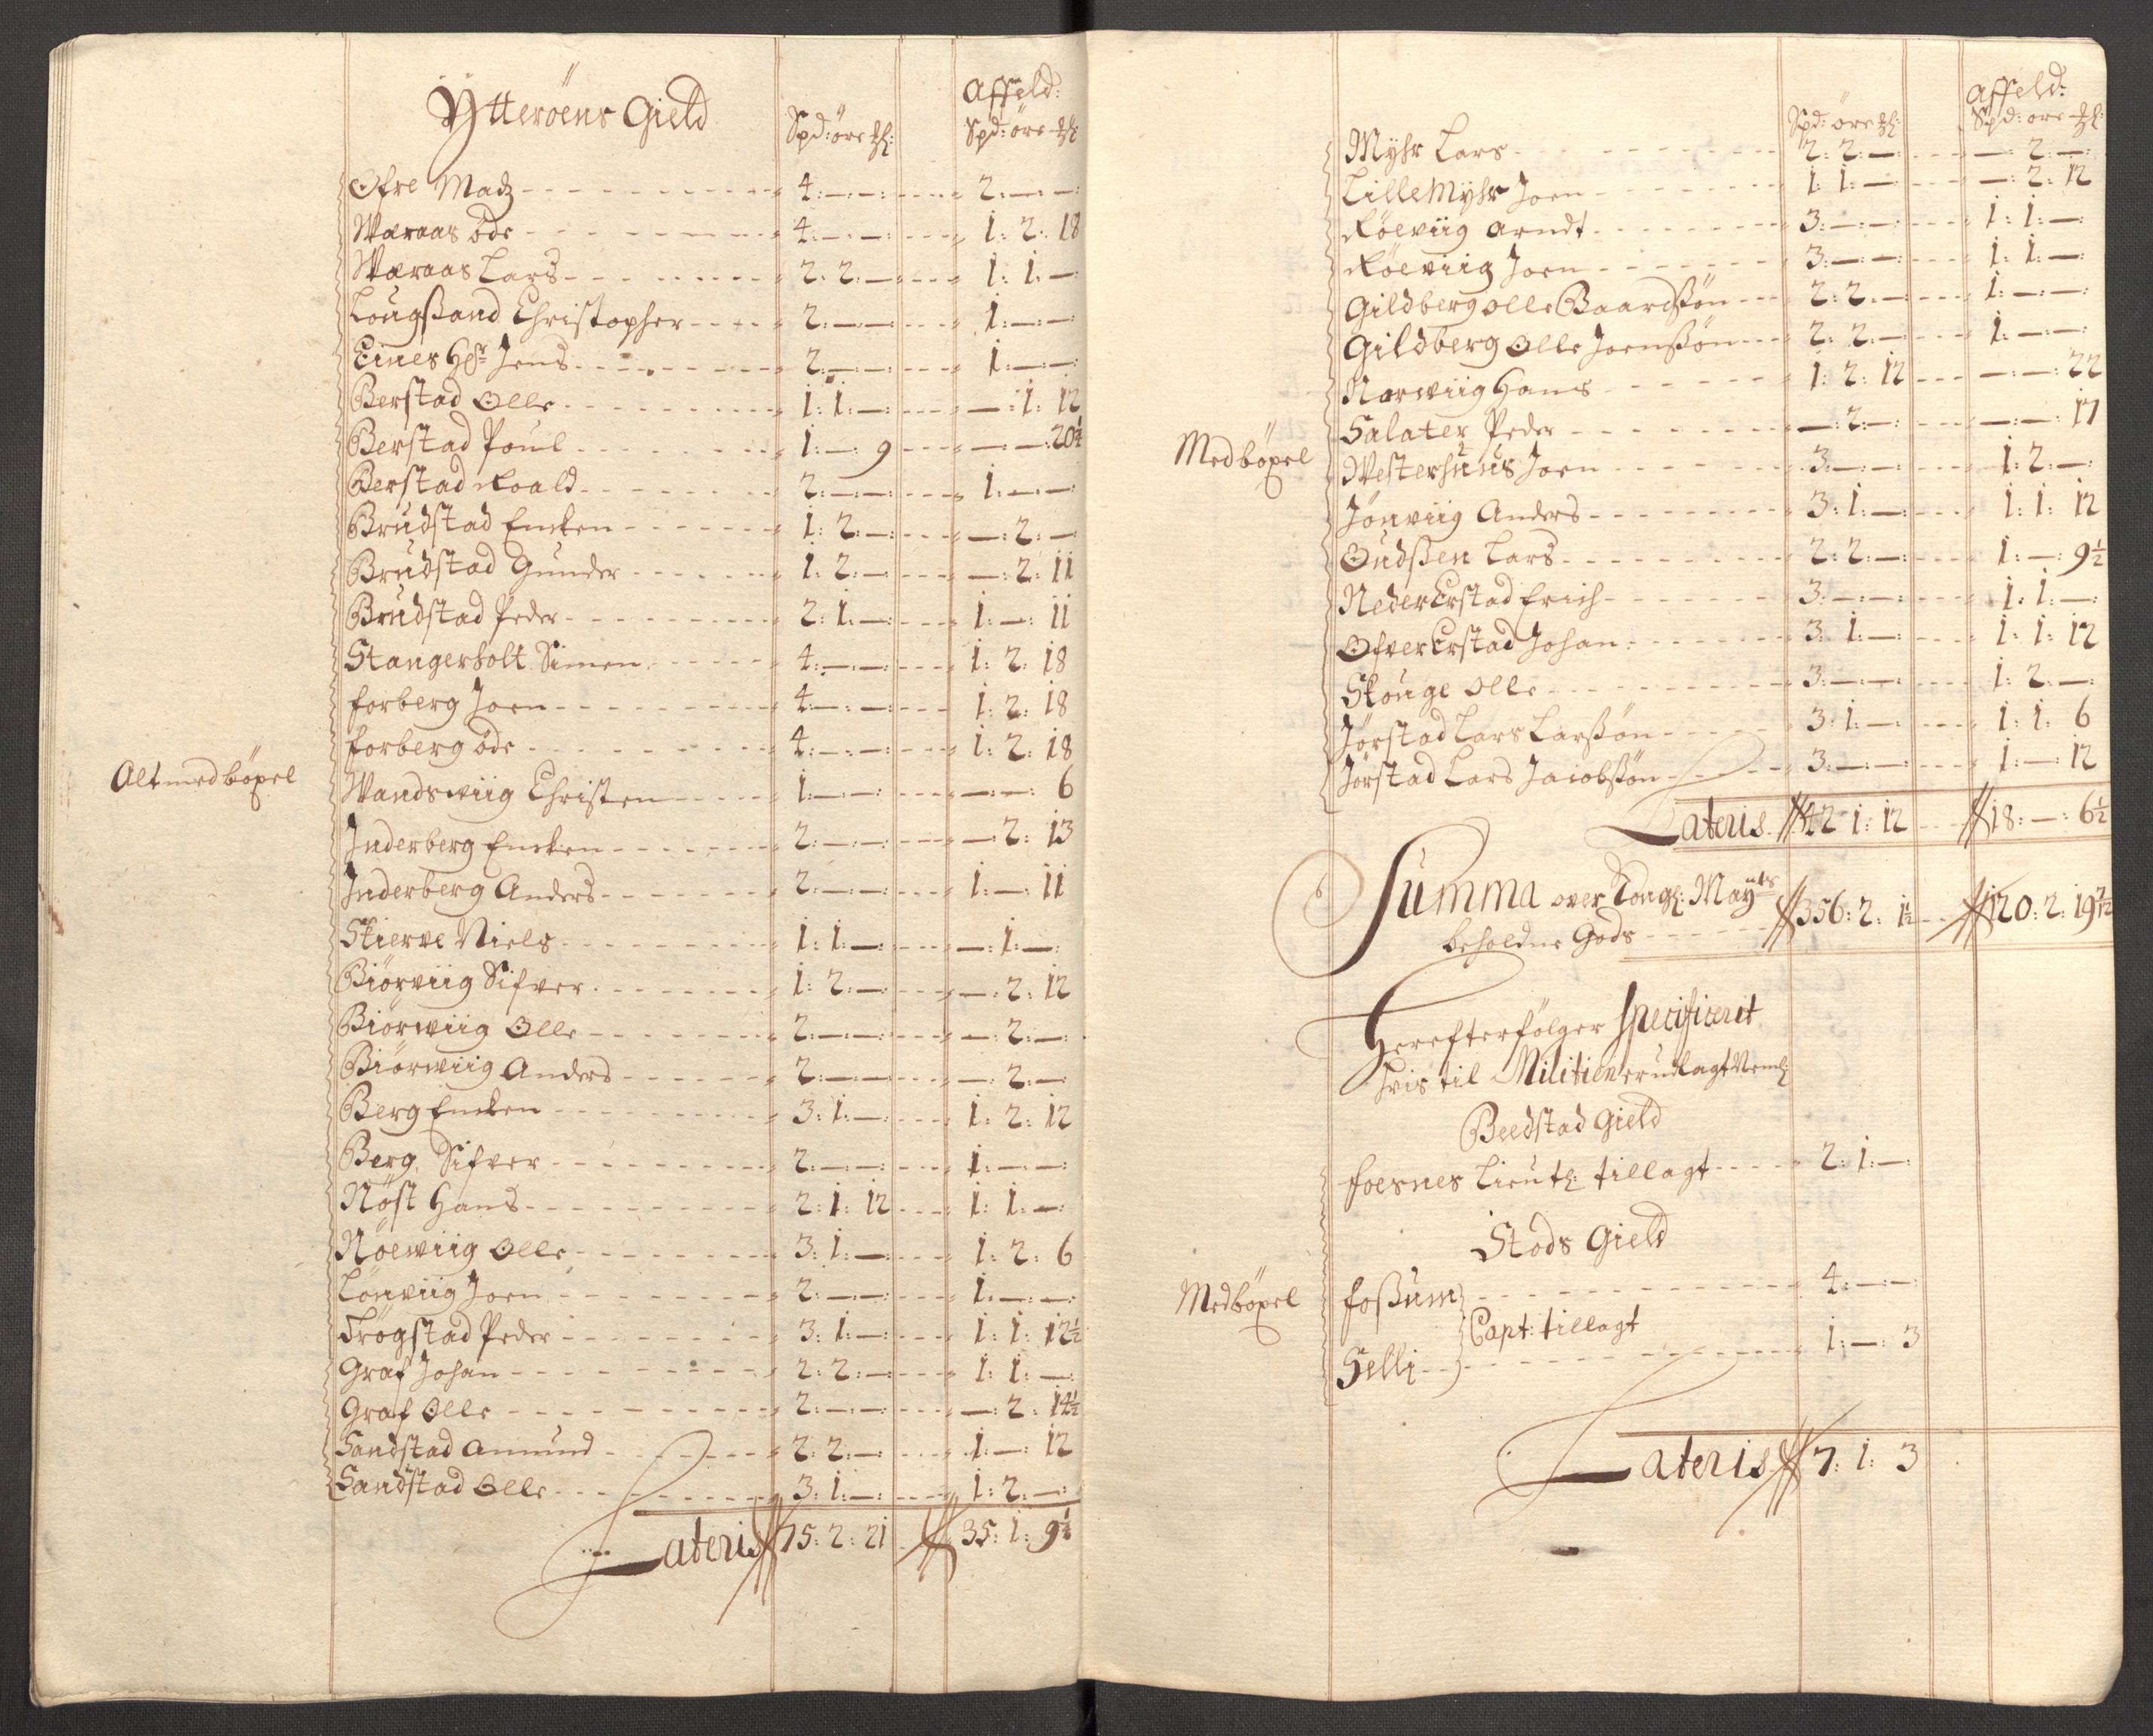 Ytteröens Gield
Affeld:
Spd: öre
Spd: öre
Ofre Madz 4:—:—: 2:—:—:
Wæraas öde 4:—:—: 1: 2: 18
Wæraas Lars 2: 2:—: 1: 1:—:
Lougßand Christopher 2:—:—: 1:—:—:
Eines Hr Jens 2:—:—: 1:—:—:
Berstad Olle 1: 1:—: —: 1: 12
Berstad Poul 1:—: 9 —:—: 20¼
Berstad Roald 2:—:—: 1:—:—:
Brudstad Encken 1: 2:—: —: 2:—:
Brudstad Gunder 1: 2:—: —: 2: 11
Brudstad Peder 2: 1:—: 1:—: 11
Stangerholt Simen 4:—:—: 1: 2: 18
forberg Joen 4:—:—: 1: 2: 18
forberg öde 4:—:—: 1: 2: 18
Alt med böxel
Wandswiig Christen 1:—:—: —:—: 6
Inderberg Encken 2:—:—: —: 2: 13
Inderberg Anders 2:—:—: 1:—: 11
Skierve Niels 1: 1:—: —: 1:—:
Biörviig Sifver 1: 2:—: —: 2: 12
Biörwiig Olle 2:—:—: —: 2:—:
Biörwiig Anders 2:—:—: —: 2:—:
Berg Encken 3: 1:—: 1: 2: 12
Berg Sifver 2:—:—: 1:—:—:
Nöst Hans 2: 1: 12 1: 1:—:
Nöewiig Olle 3: 1:—: 1: 2: 6
Lönviig Joen 2:—:—: 1:—:—:
Trögstad Peder 3: 1:—: 1: 1: 12½
Graf Johan 2: 2:—: 1: 1:—:
Graf Olle 2:—:—: —: 2: 14½
Sandstad Amund 2: 2:—: 1:—: 12
Sandstad Olle 3: 1:—: 1: 2:—:
Lateris 75: 2: 21 35: 1: 9¼
Affeld:
Spd: öre
Spd: öre
Myhr Lars 2: 2:—: —: 2:—:
Lille Myhr Joen 1: 1:—: —: 2: 12
Röeviig Arndt 3:—:—: 1: 1:—:
Röeviig Joen 3:—:—: 1: 1:—:
Gildberg Olle Baardßön 2: 2:—: 1:—:—:
Gildberg Olle Joenßön 2: 2:—: 1:—:—:
Norwiig Hans 1: 2: 12 —:—: 22
Salater Peder —: 2:—: —:—: 17
Medböxel
Westerhuus Joen 3:—:—: 1: 2:—:
Jönviig Anders 3: 1:—: 1: 1: 12
Oudßen Lars 2: 2:—: 1:—: 9½
Neder Erstad Erich 3:—:—: 1: 1:—:
Ofver Erstad Johan 3: 1:—: 1: 1: 12
Skouge Olle 3:—:—: 1: 2:—:
Jörstad Lars Larßön 3: 1:—: 1: 1: 6
Jörstad Lars Jacobßön 3:—:—: 1:—: 12
Lateris 42: 1: 12 18:—: 6½
Summa over Kongl: Mayts
beholdne Gods 356: 2: 1½ 120: 2: 19 7/12
Herefterfölger Specificerit
hvis til Militien er udlagt Neml:
Beedstad Gield
foesnes Lieut: tillagt 2: 1:—:
Stods Gield
Medböxel
foßum 4:—:—:
Capt: tillagt
Selli 1:—: 3
Lateris 7: 1: 3